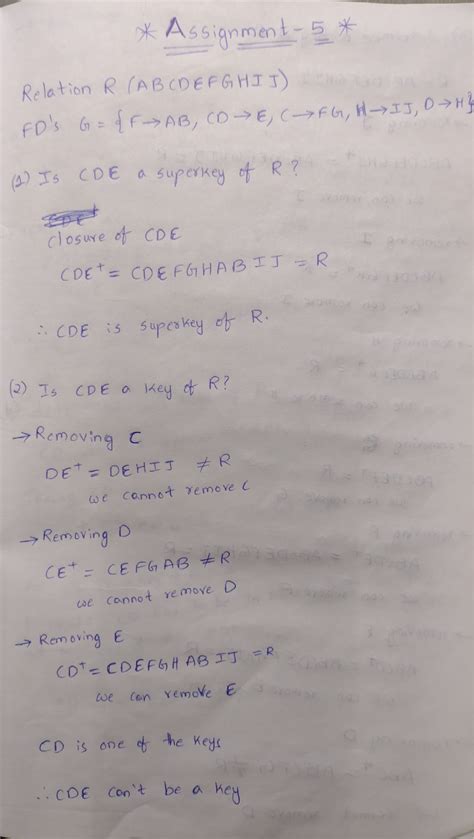 * Assignment - 5 *
Relation R (ABCDEFGHIJ)
FD's G = {F→AB, CD→E, C→FG, H→IJ, D→H}
(1) Is CDE a superkey of R?
closure of CDE
CDE⁺ = CDEFGHABIJ = R
∴ CDE is superkey of R.
(2) Is CDE a key of R?
→ Removing C
DE⁺ = DEHIJ ≠ R
we cannot remove C
→ Removing D
CE⁺ = CEFGAB ≠ R
we cannot remove D
→ Removing E
CD⁺ = CDEFGHABIJ = R
we can remove E
CD is one of the keys
∴ CDE can't be a key